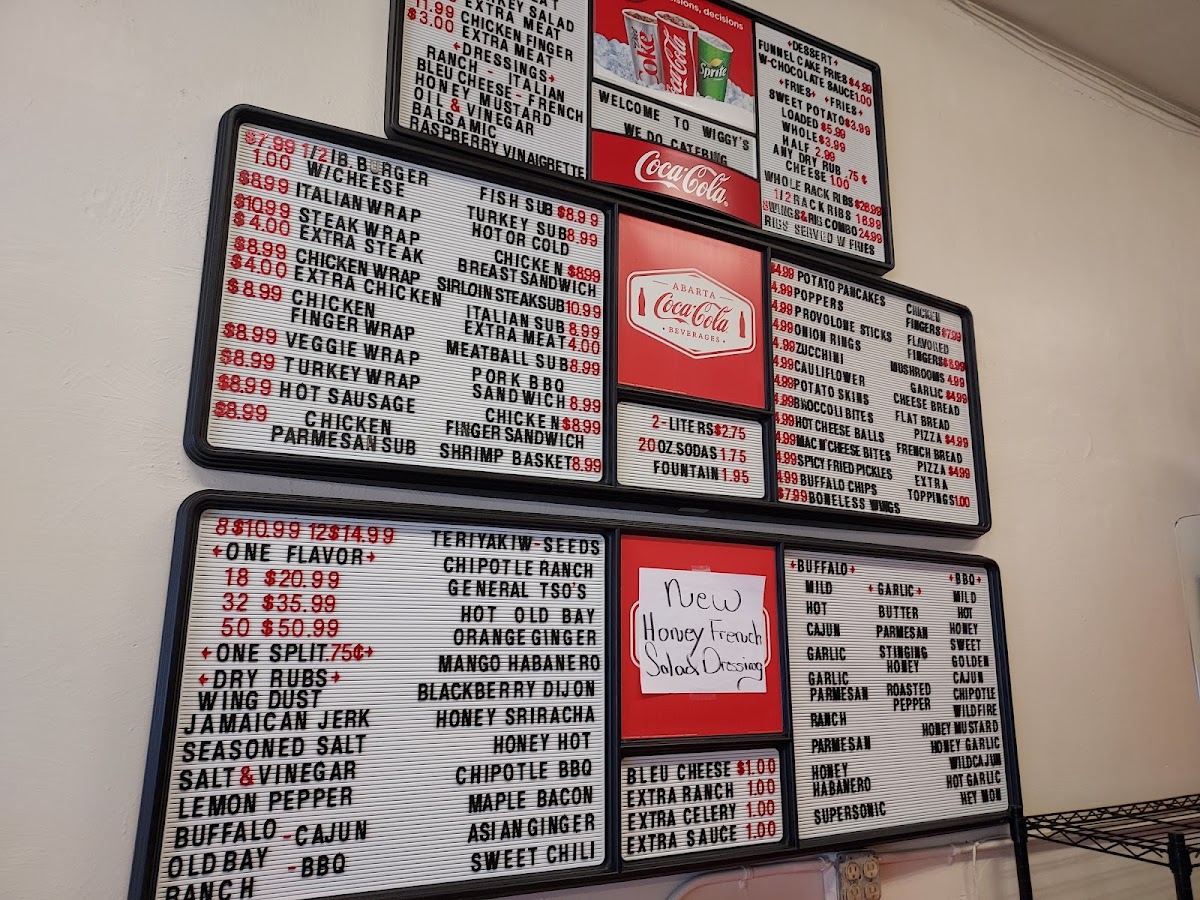 TURKEY SALAD
EXTRA MEAT
11.99 CHICKEN FINGER
$3.00 EXTRA MEAT
DRESSINGS
RANCH - ITALIAN
BLEU CHEESE - FRENCH
HONEY MUSTARD
OIL & VINEGAR
BALSAMIC
RASPBERRY VINAIGRETTE
decisions, decisions
Coke
Coca-Cola
Sprite
WELCOME TO WIGGY'S
WE DO CATERING
Coca-Cola
DESSERT
FUNNEL CAKE FRIES $4.99
W-CHOCOLATE SAUCE 1.00
FRIES FRIES
SWEET POTATO $3.99
LOADED $5.99
WHOLE $3.99
HALF 2.99
ANY DRY RUB .75 ¢
CHEESE 1.00
WHOLE RACK RIBS $26.99
1/2 RACK RIBS 16.99
5WINGS&RIB COMBO 24.99
RIBS SERVED W FRIES
$7.99 1/2 lB BURGER
1.00 W/CHEESE
$8.99 ITALIAN WRAP
$10.99 STEAK WRAP
$4.00 EXTRA STEAK
$8.99 CHICKEN WRAP
$4.00 EXTRA CHICKEN
$8.99 CHICKEN
FINGER WRAP
$8.99 VEGGIE WRAP
$8.99 TURKEY WRAP
$8.99 HOT SAUSAGE
$8.99 CHICKEN
PARMESAN SUB
FISH SUB $8.99
TURKEY SUB 8.99
HOT OR COLD
CHICKEN $8.99
BREAST SANDWICH
SIRLOIN STEAK SUB 10.99
ITALIAN SUB 8.99
EXTRA MEAT 4.00
MEATBALL SUB 8.99
PORK BBQ
SANDWICH 8.99
CHICKEN $8.99
FINGER SANDWICH
SHRIMP BASKET 8.99
ABARTA
Coca-Cola
BEVERAGES
2-LITERS $2.75
20 OZ. SODAS 1.75
FOUNTAIN 1.95
$4.99 POTATO PANCAKES
4.99 POPPERS
4.99 PROVOLONE STICKS
4.99 ONION RINGS
4.99 ZUCCHINI
4.99 CAULIFLOWER
4.99 POTATO SKINS
4.99 BROCCOLI BITES
4.99 HOT CHEESE BALLS
4.99 MAC N' CHEESE BITES
4.99 SPICY FRIED PICKLES
4.99 BUFFALO CHIPS
$7.99 BONELESS WINGS
CHICKEN
FINGERS $7.99
FLAVORED
FINGERS $8.99
MUSHROOMS 4.99
GARLIC $4.99
CHEESE BREAD
FLAT BREAD
PIZZA $4.99
FRENCH BREAD
PIZZA $4.99
EXTRA
TOPPINGS 1.00
8 $10.99 12 $14.99
ONE FLAVOR
18 $20.99
32 $35.99
50 $50.99
ONE SPLIT .75¢
DRY RUBS
WING DUST
JAMAICAN JERK
SEASONED SALT
SALT & VINEGAR
LEMON PEPPER
BUFFALO - CAJUN
OLD BAY - BBQ
RANCH
TERIYAKI W-SEEDS
CHIPOTLE RANCH
GENERAL TSO'S
HOT OLD BAY
ORANGE GINGER
MANGO HABANERO
BLACKBERRY DIJON
HONEY SRIRACHA
HONEY HOT
CHIPOTLE BBQ
MAPLE BACON
ASIAN GINGER
SWEET CHILI
New
Honey French
Salad Dressing
BLEU CHEESE $1.00
EXTRA RANCH 1.00
EXTRA CELERY 1.00
EXTRA SAUCE 1.00
BUFFALO
MILD
HOT
CAJUN
GARLIC
GARLIC
PARMESAN
RANCH
PARMESAN
HONEY
HABANERO
SUPERSONIC
GARLIC
BUTTER
PARMESAN
STINGING
HONEY
ROASTED
PEPPER
BBQ
MILD
HOT
HONEY
SWEET
GOLDEN
CAJUN
CHIPOTLE
WILDFIRE
HONEY MUSTARD
HONEY GARLIC
WILDCAJUN
HOT GARLIC
HEY MON